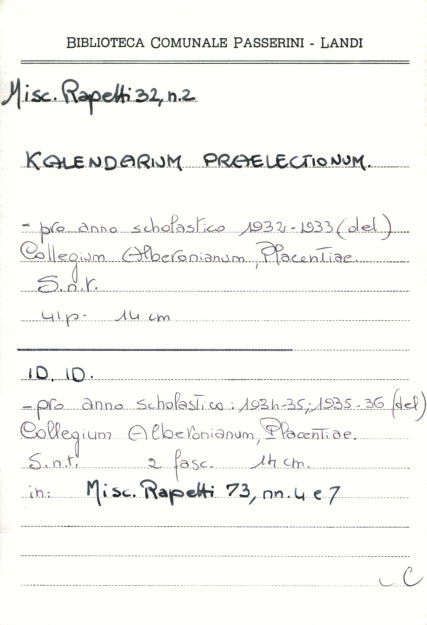 BIBLIOTECA COMUNALE PASSERINI - LANDI
Misc. Rapetti 32, n.2
KALENDARIUM PRAELECTIONUM.
- pro anno scholastico 1932-1933 (del)
Collegium Alberonianum, Placentiae.
S.n.t.
41p. 14 cm
ID. ID.
- pro anno scholastico: 1934-35; 1935-36 (del)
Collegium Alberonianum, Placentiae.
S.n.t. 2 fasc. 14 cm.
in: Misc. Rapetti 73, nn. 4 e 7
C